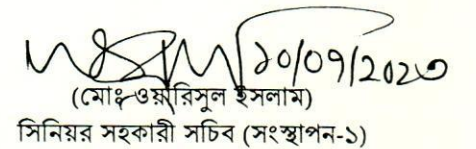 ১০/০৭/২০২৩
(মোঃ ওয়ারিসুল ইসলাম)
সিনিয়র সহকারী সচিব (সংস্থাপন-১)